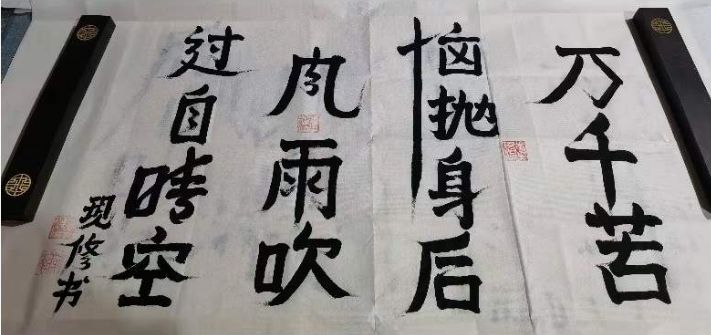 万千苦
恼抛身后
风雨吹
过自晴空
现修书